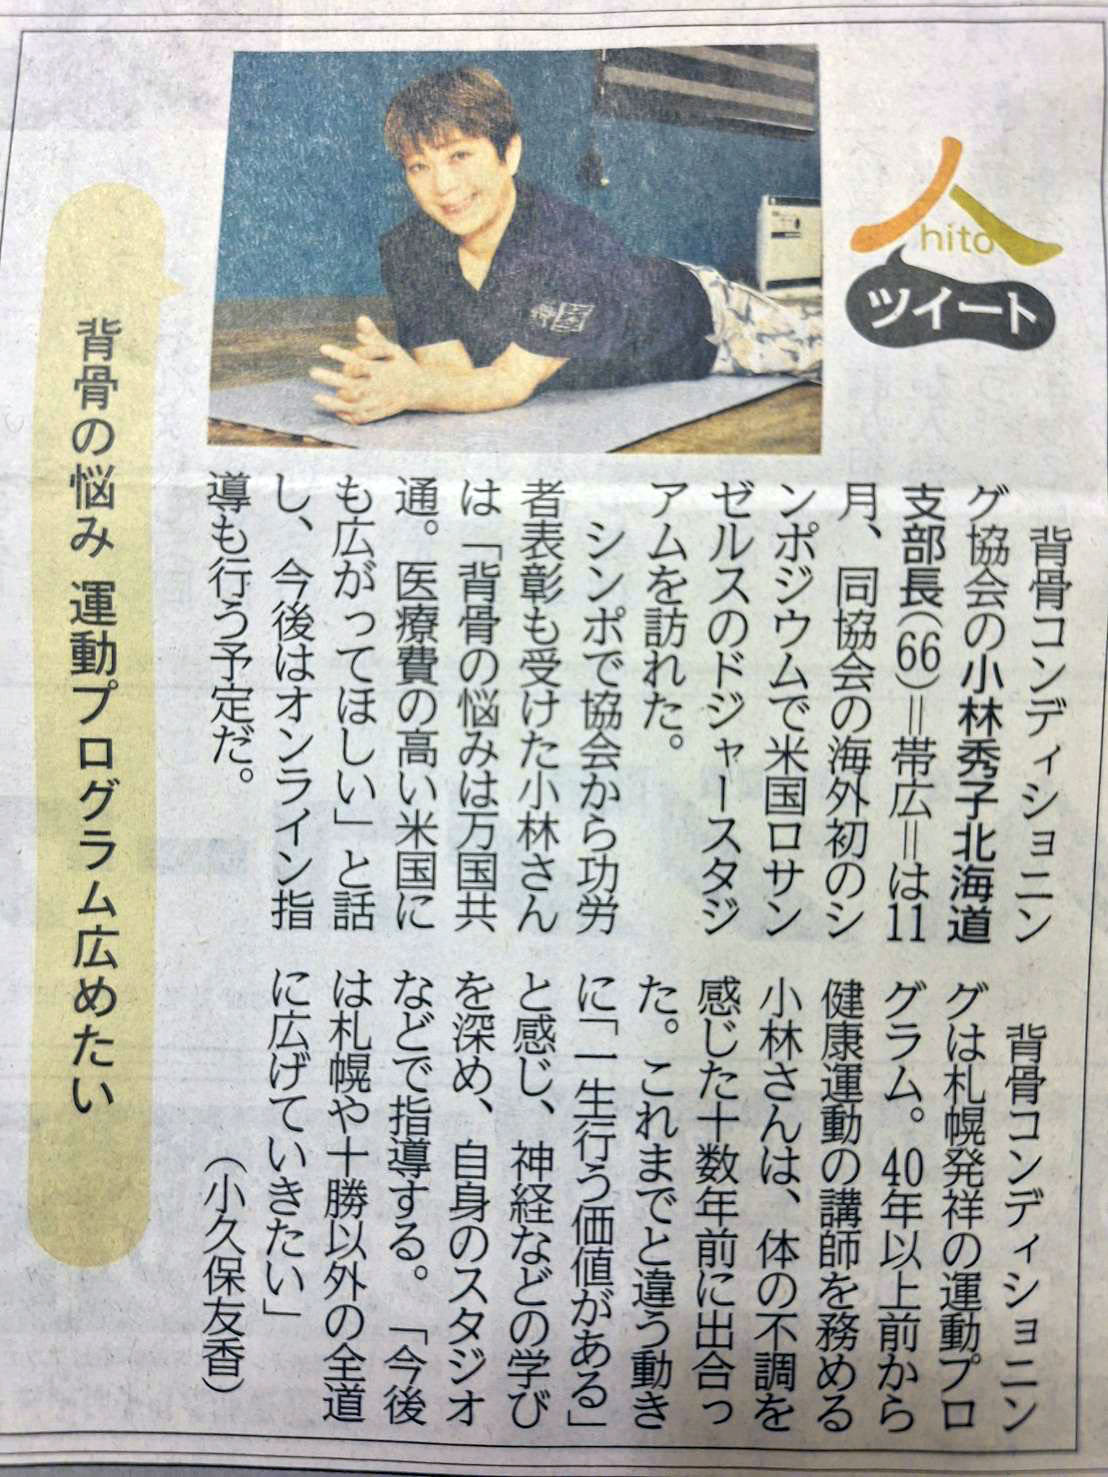 人
hito
ツイート
背骨の悩み 運動プログラム広めたい
背骨コンディショニン
グ協会の小林秀子北海道
支部長(66)＝帯広＝は11
月、同協会の海外初のシ
ンポジウムで米国ロサン
ゼルスのドジャースタジ
アムを訪れた。
シンポで協会から功労
者表彰も受けた小林さん
は「背骨の悩みは万国共
通。医療費の高い米国に
も広がってほしい」と話
し、今後はオンライン指
導も行う予定だ。
背骨コンディショニン
グは札幌発祥の運動プロ
グラム。40年以上前から
健康運動の講師を務める
小林さんは、体の不調を
感じた十数年前に出合っ
た。これまでと違う動き
に「一生行う価値がある」
と感じ、神経などの学び
を深め、自身のスタジオ
などで指導する。「今後
は札幌や十勝以外の全道
に広げていきたい」
(小久保友香)